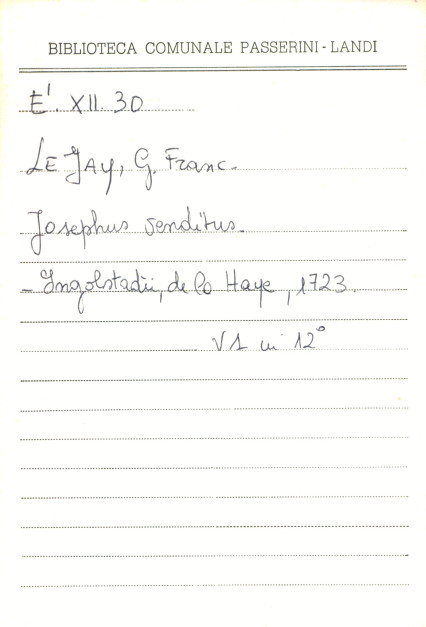 BIBLIOTECA COMUNALE PASSERINI - LANDI
E'. XII. 30
LE JAY, G. Franc.
Josephus venditus.
- Ingolstadii, de la Haye, 1723.
V 1 in 12°